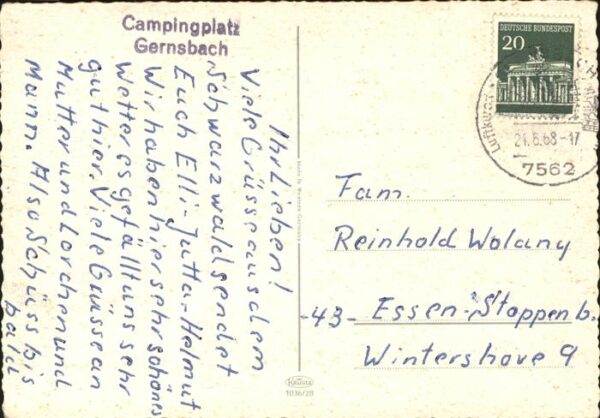 Campingplatz
Gernsbach
Ihr Lieben!
Viele Grüsse aus dem
Schwarzwald sendet
Euch Elli-Jutta-Helmut
Wir haben hier sehr schönes
Wetter es gefällt uns sehr
gut hier. Viele Grüsse an
Mutter und Lorchen und
Mann. Also Schüss bis
bald
DEUTSCHE BUNDESPOST
20
Luftkur
21.6.68-17
7562
Fam.
Reinhold Wolany
-43- Essen-Stoppenb.
Wintershove 9
Krüger
1036/28